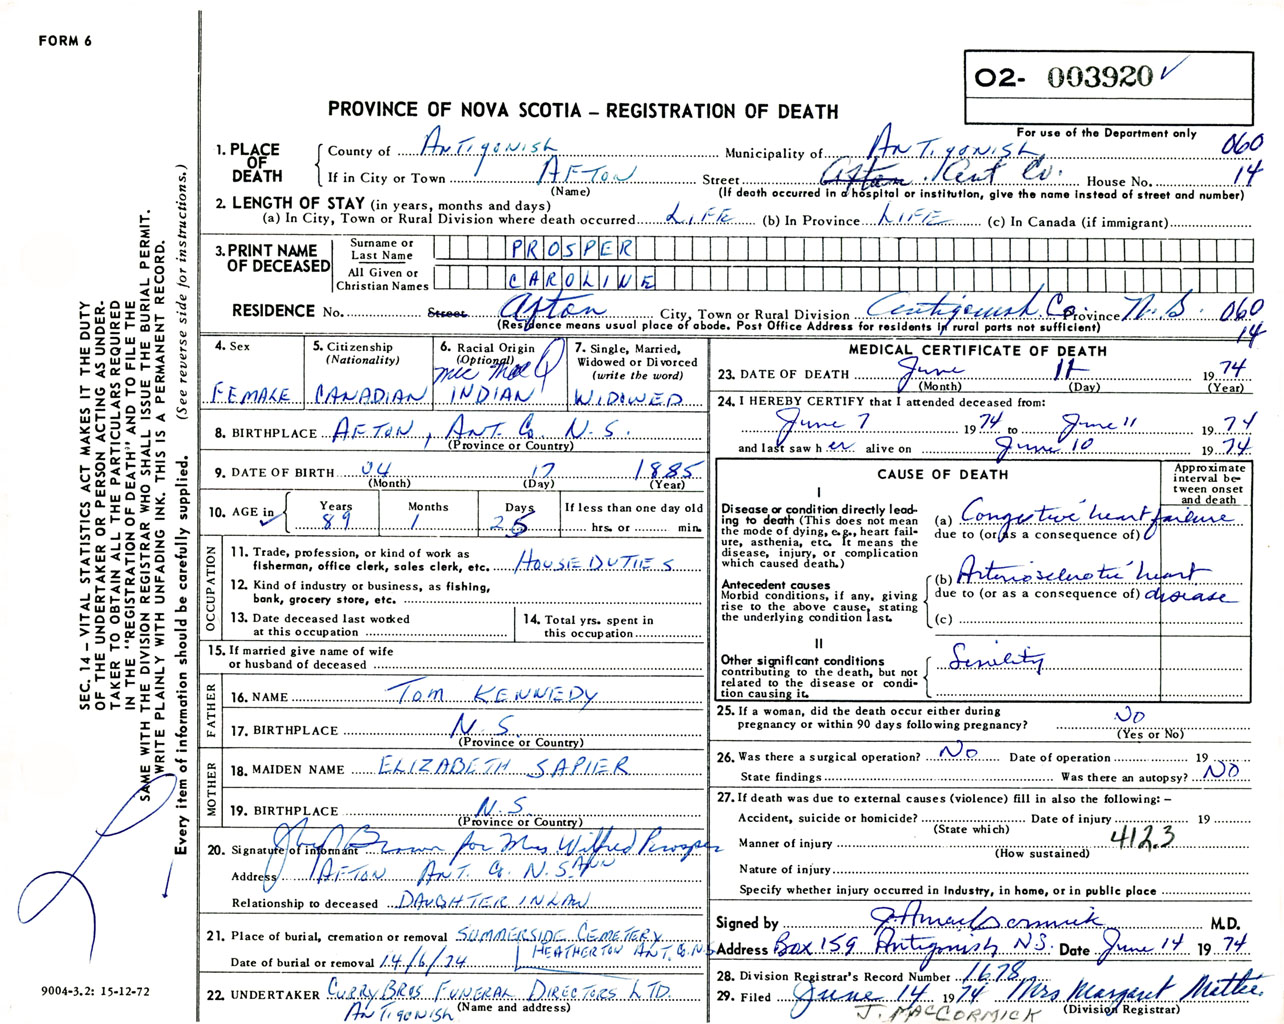 FORM 6
02- 003920
For use of the Department only
PROVINCE OF NOVA SCOTIA – REGISTRATION OF DEATH
1. PLACE OF DEATH
County of Antigonish Municipality of Antigonish 060
If in City or Town AFTON Street Afton Ant Co. House No. 14
(Name) (If death occurred in a hospital or institution, give the name instead of street and number)
2. LENGTH OF STAY (in years, months and days)
(a) In City, Town or Rural Division where death occurred LIFE (b) In Province LIFE (c) In Canada (if immigrant)
3. PRINT NAME OF DECEASED
Surname or Last Name PROSPER
All Given or Christian Names CAROLINE
RESIDENCE No. Street Afton City, Town or Rural Division Antigonish Co. Province N.S. 060
(Residence means usual place of abode. Post Office Address for residents in rural parts not sufficient) 14
4. Sex
FEMALE
5. Citizenship (Nationality)
CANADIAN
6. Racial Origin (Optional)
Mic Mac
INDIAN
7. Single, Married, Widowed or Divorced (write the word)
WIDOWED
8. BIRTHPLACE AFTON, ANT. Co. N.S.
(Province or Country)
9. DATE OF BIRTH 04 17 1885
(Month) (Day) (Year)
10. AGE in
Years Months Days If less than one day old
89 1 25 hrs. or min.
OCCUPATION
11. Trade, profession, or kind of work as fisherman, office clerk, sales clerk, etc. HOUSE DUTIES
12. Kind of industry or business, as fishing, bank, grocery store, etc.
13. Date deceased last worked at this occupation
14. Total yrs. spent in this occupation
15. If married give name of wife or husband of deceased
FATHER
16. NAME TOM KENNEDY
17. BIRTHPLACE N.S.
(Province or Country)
MOTHER
18. MAIDEN NAME ELIZABETH SAPIER
19. BIRTHPLACE N.S.
(Province or Country)
20. Signature of informant Brown for Mrs Wilfred Prosper
ANN
Address AFTON ANT. Co. N.S.
Relationship to deceased DAUGHTER IN LAW
21. Place of burial, cremation or removal SUMMERSIDE CEMETERY
HEATHERTON ANT. Co. N.S.
Date of burial or removal 14/6/74
22. UNDERTAKER CURRY BROS FUNERAL DIRECTORS LTD.
ANTIGONISH (Name and address)
MEDICAL CERTIFICATE OF DEATH
23. DATE OF DEATH June 11 1974
(Month) (Day) (Year)
24. I HEREBY CERTIFY that I attended deceased from:
June 7 1974 to June 11 1974
and last saw her alive on June 10 1974
CAUSE OF DEATH
Approximate interval between onset and death
I
Disease or condition directly leading to death (This does not mean the mode of dying, e.g., heart failure, asthenia, etc. It means the disease, injury, or complication which caused death.)
(a) Congestive heart failure
due to (or as a consequence of)
Antecedent causes
Morbid conditions, if any, giving rise to the above cause, stating the underlying condition last.
(b) Arteriosclerotic heart
due to (or as a consequence of) disease
(c)
II
Other significant conditions contributing to the death, but not related to the disease or condition causing it.
Senility
25. If a woman, did the death occur either during pregnancy or within 90 days following pregnancy? NO
(Yes or No)
26. Was there a surgical operation? NO Date of operation 19
State findings Was there an autopsy? NO
27. If death was due to external causes (violence) fill in also the following: –
Accident, suicide or homicide? Date of injury 19
(State which)
412.3
Manner of injury
(How sustained)
Nature of injury
Specify whether injury occurred in industry, in home, or in public place
Signed by MacCormick M.D.
Address Box 159 Antigonish N.S. Date June 14 1974
28. Division Registrar's Record Number 1678
29. Filed June 14 1974 Mrs Margaret
(Division Registrar)
J. MACCORMICK
SEC. 14 – VITAL STATISTICS ACT MAKES IT THE DUTY
OF THE UNDERTAKER OR PERSON ACTING AS UNDER-
TAKER TO OBTAIN ALL THE PARTICULARS REQUIRED
IN THE "REGISTRATION OF DEATH" AND TO FILE THE
SAME WITH THE DIVISION REGISTRAR WHO SHALL ISSUE THE BURIAL PERMIT.
WRITE PLAINLY WITH UNFADING INK. THIS IS A PERMANENT RECORD.
Every item of information should be carefully supplied. (See reverse side for instructions.)
9004-3.2: 15-12-72